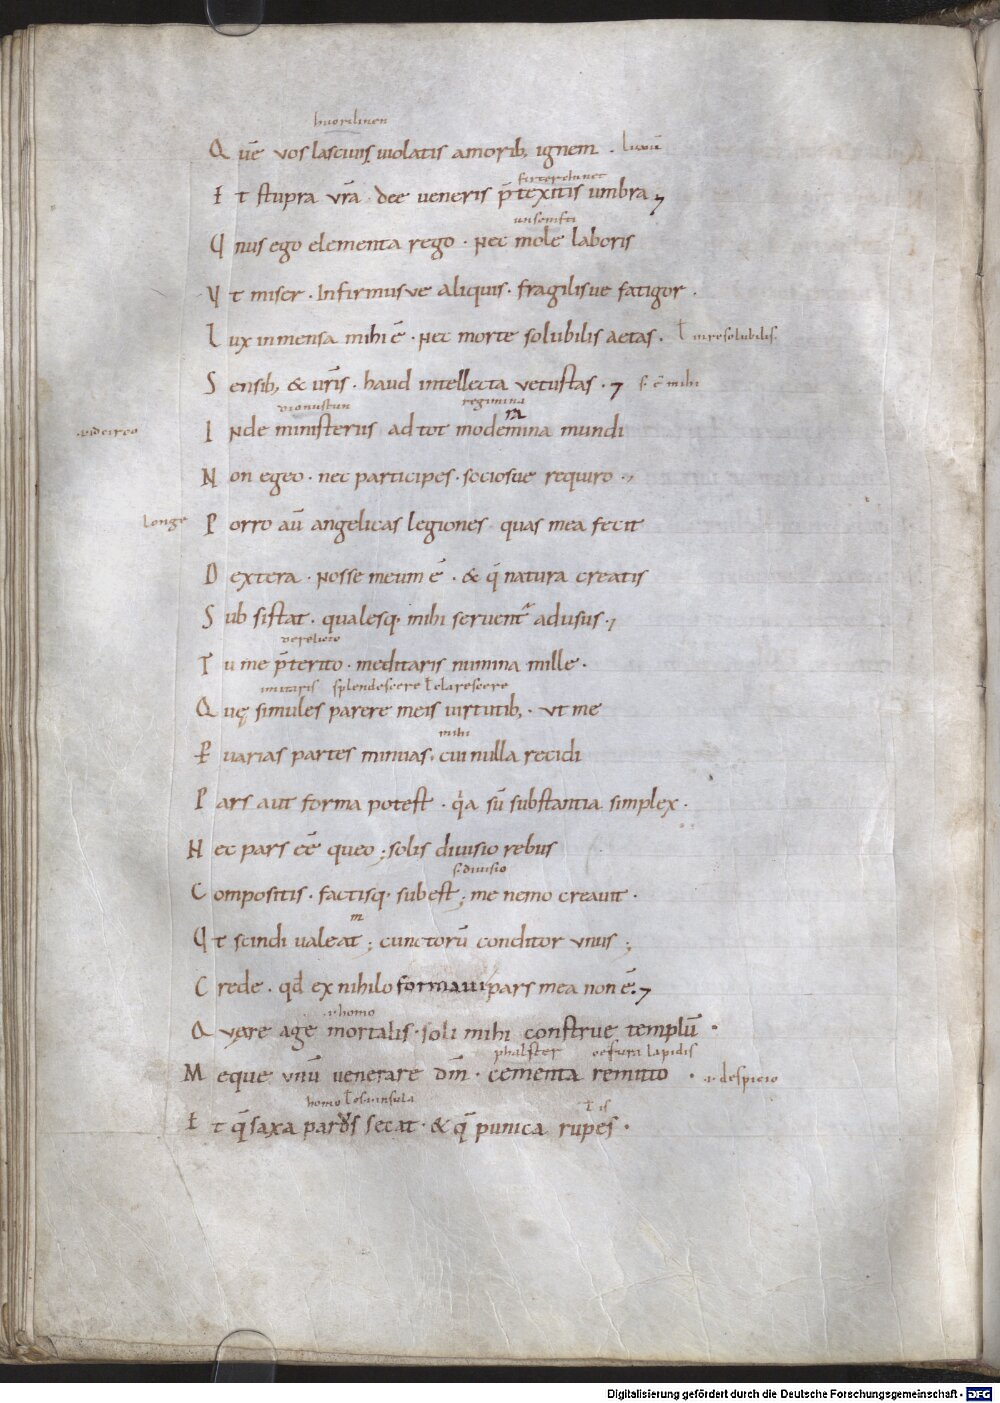 huorlinen
Que͞ vos lascivis violatis amorib; ignem . l uruͫ
Et stupra vr͞a . dee veneris p͞texitis umbra;
unsemfti
Unus ego elementa rego . Nec mole laboris
Ut miser . Infirmusve aliquis . fragilisve fatigor .
Lux inmensa mihi e͞ . Nec morte solubilis aetas . ł inresolubilis.
Sensib; & ur͞is . haud intellecta vetustas . 7 s. e͞ mihi
vionustun regimina
.i. ideirco Inde ministeriis ad tot modemina mundi
Non egeo . nec participes . sociosve requiro .,
Longe Porro au͞ angelicas legiones quas mea fecit
Dextera . Nosse meum e͞ . & q͞ natura creatis
Sub sistat . qualesq. mihi servent᷑ ad usus .,
Tu me p͞terito . meditaris numina mille .
imitaris splendescere ł clarescere
Quę simules parere meis virtutib; . ut me
mihi
P̱ varias partes minuas . cui nulla recidi
Pars aut forma potest . q̍a su͞ substantia simplex .
Nec pars ee͞ queo ; solis divisio rebus
s. divisio
Compositis . factisq. subest ; me nemo creavit .
m
Ut scindi valeat ; cunctoru͞ conditor unus ;
Crede . qd͞ ex nihilo formavi pars mea non e͞. 7
.i. homo
Quare age mortalis . soli mihi construe templu͞ .
phalster
Meque unu͞ venerare dm͞ . cementa remitto . .i. despicio
ł is
Et q͞ saxa paros secat . & q͞ punica rupes .
Digitalisierung gefördert durch die Deutsche Forschungsgemeinschaft - DFG